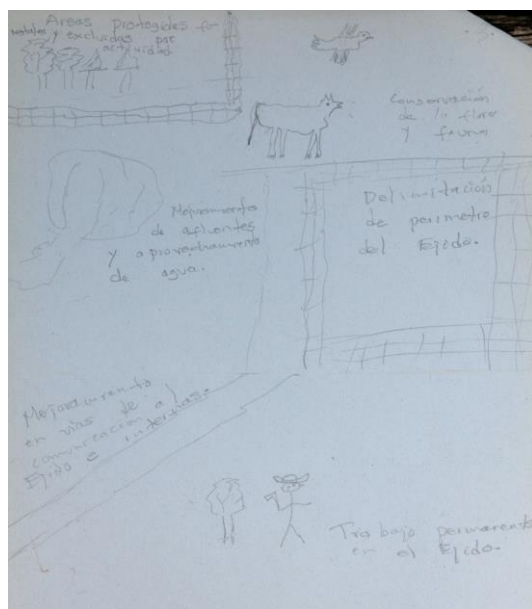 Areas protegidas for
restales y excluidas por
actividad
Conservación
de la flora
y fauna
Mejoramiento
de afluentes
y aprovechamiento
de agua.
Delimitación
de perimetro
del Ejido.
Mejoramiento
en vias de
comunicación al
Ejido e internas
Trabajo permanente
en el Ejido.